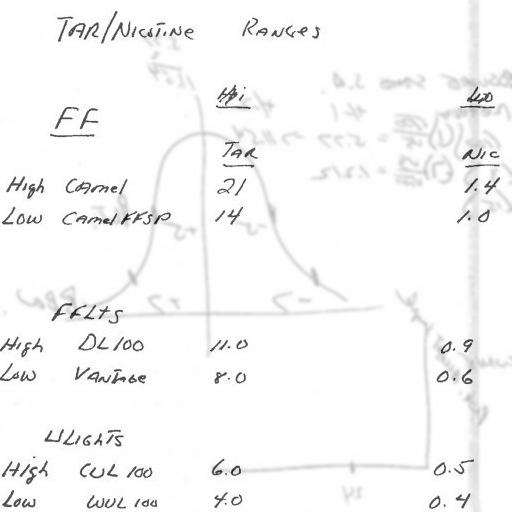 TAR/NICOTINE RANGES
FF
TAR NIC
High Camel 21 1.4
Low Camel FFSP 14 1.0
FFLTS
High DL 100 11.0 0.9
Low VANTAGE 8.0 0.6
ULIGHTS
High CUL 100 6.0 0.5
Low WUL 100 4.0 0.4